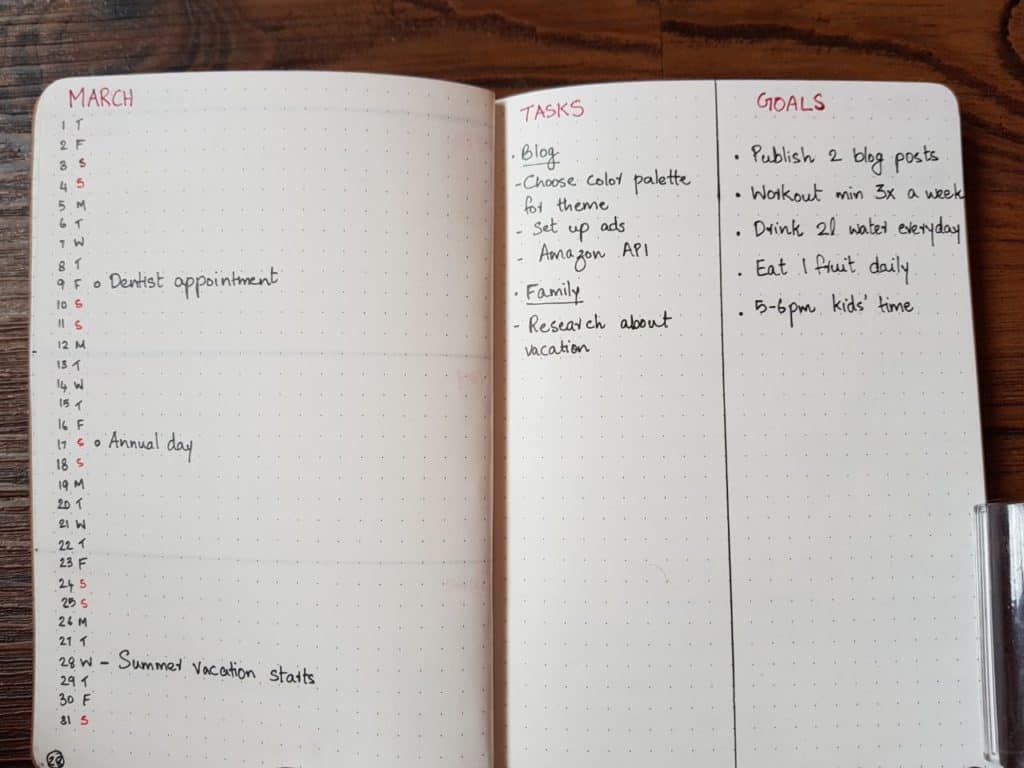 MARCH
1 T
2 F
3 S
4 S
5 M
6 T
7 W
8 T
9 F o Dentist appointment
10 S
11 S
12 M
13 T
14 W
15 T
16 F
17 S o Annual day
18 S
19 M
20 T
21 W
22 T
23 F
24 S
25 S
26 M
27 T
28 W - Summer vacation starts
29 T
30 F
31 S
28
TASKS
• Blog
- Choose color palette
for theme
- Set up ads
- Amazon API
• Family
- Research about
vacation
GOALS
• Publish 2 blog posts
• Workout min 3x a week
• Drink 2l water everyday
• Eat 1 fruit daily
• 5-6pm kids' time